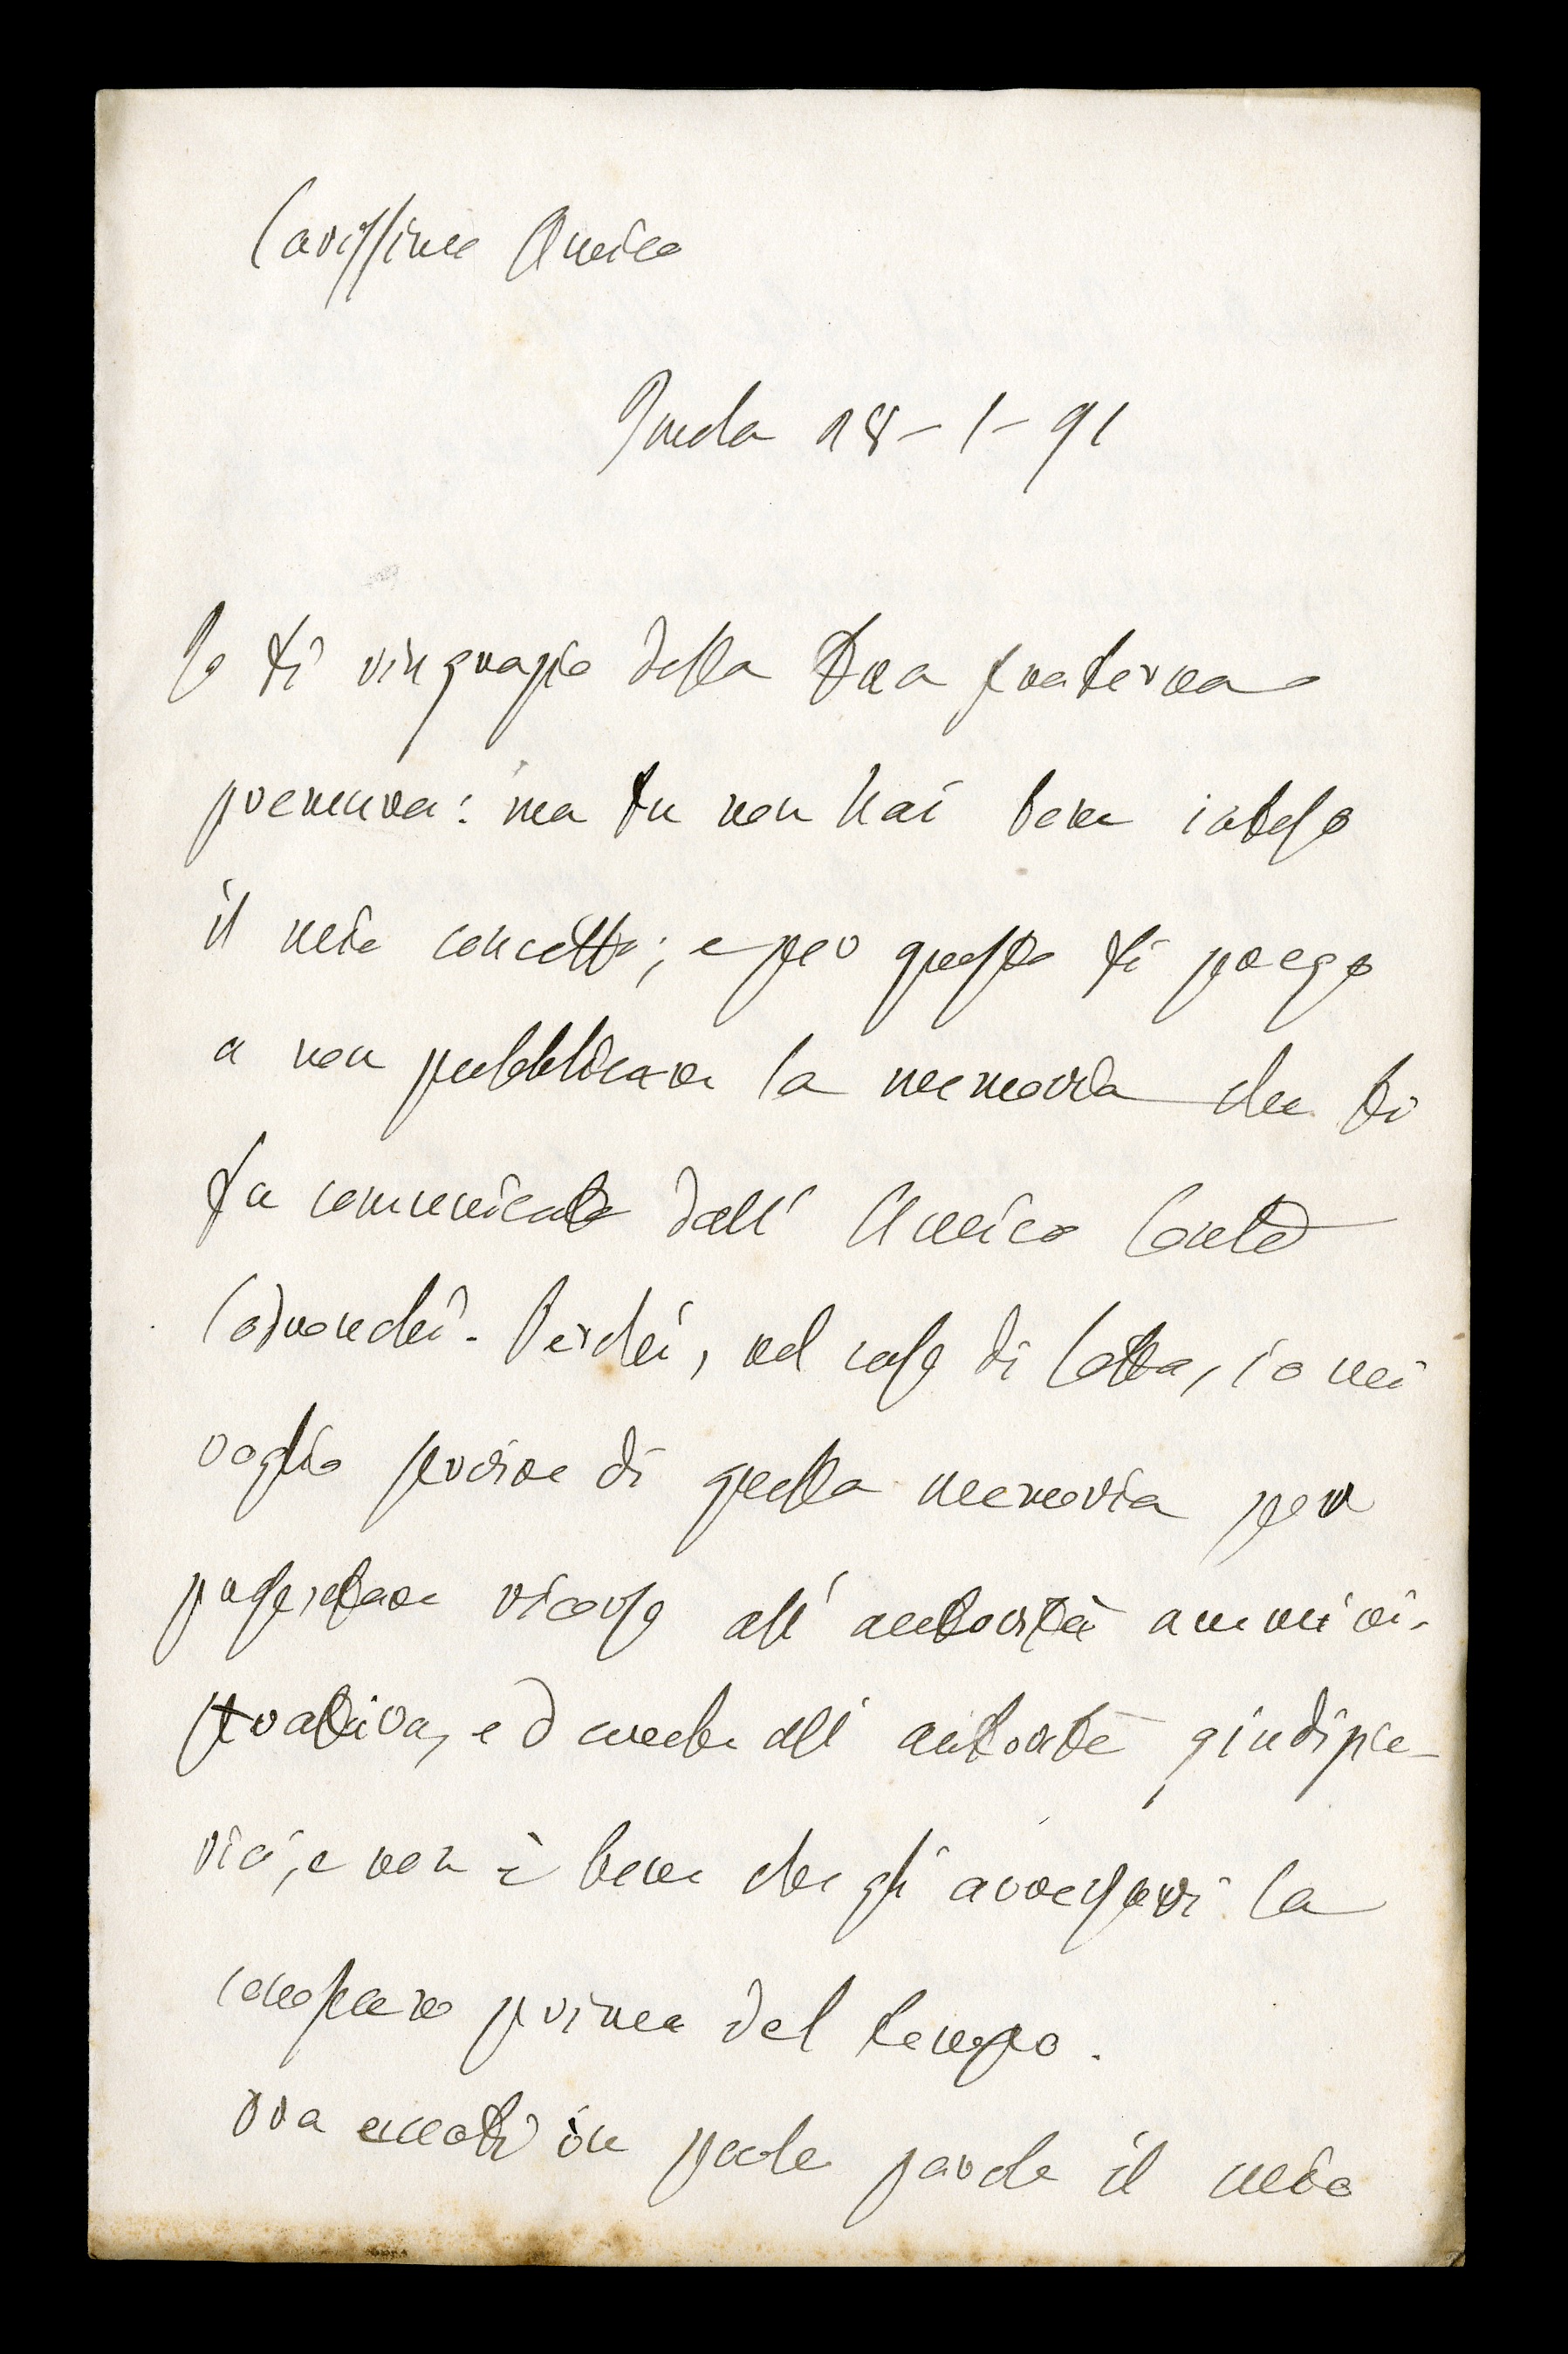 Carissimo Amico
Imola 18-1-91
Io ti ringrazio della tua fraterna
premura: ma tu non hai bene inteso
il mio concetto; e per questo ti prego
a non pubblicare la memoria che ti
fu comunicata dall' Amico Conte
Codronchi. Perchè, nel caso di lotta, io mi
voglio servire di quella memoria per
presentare ricorso all' autorità ammini-
strativa, ed anche all' autorità giudizia-
ria, e non è bene che gli avversari la
conoscano prima del tempo.
Ora eccoti in poche parole il mio